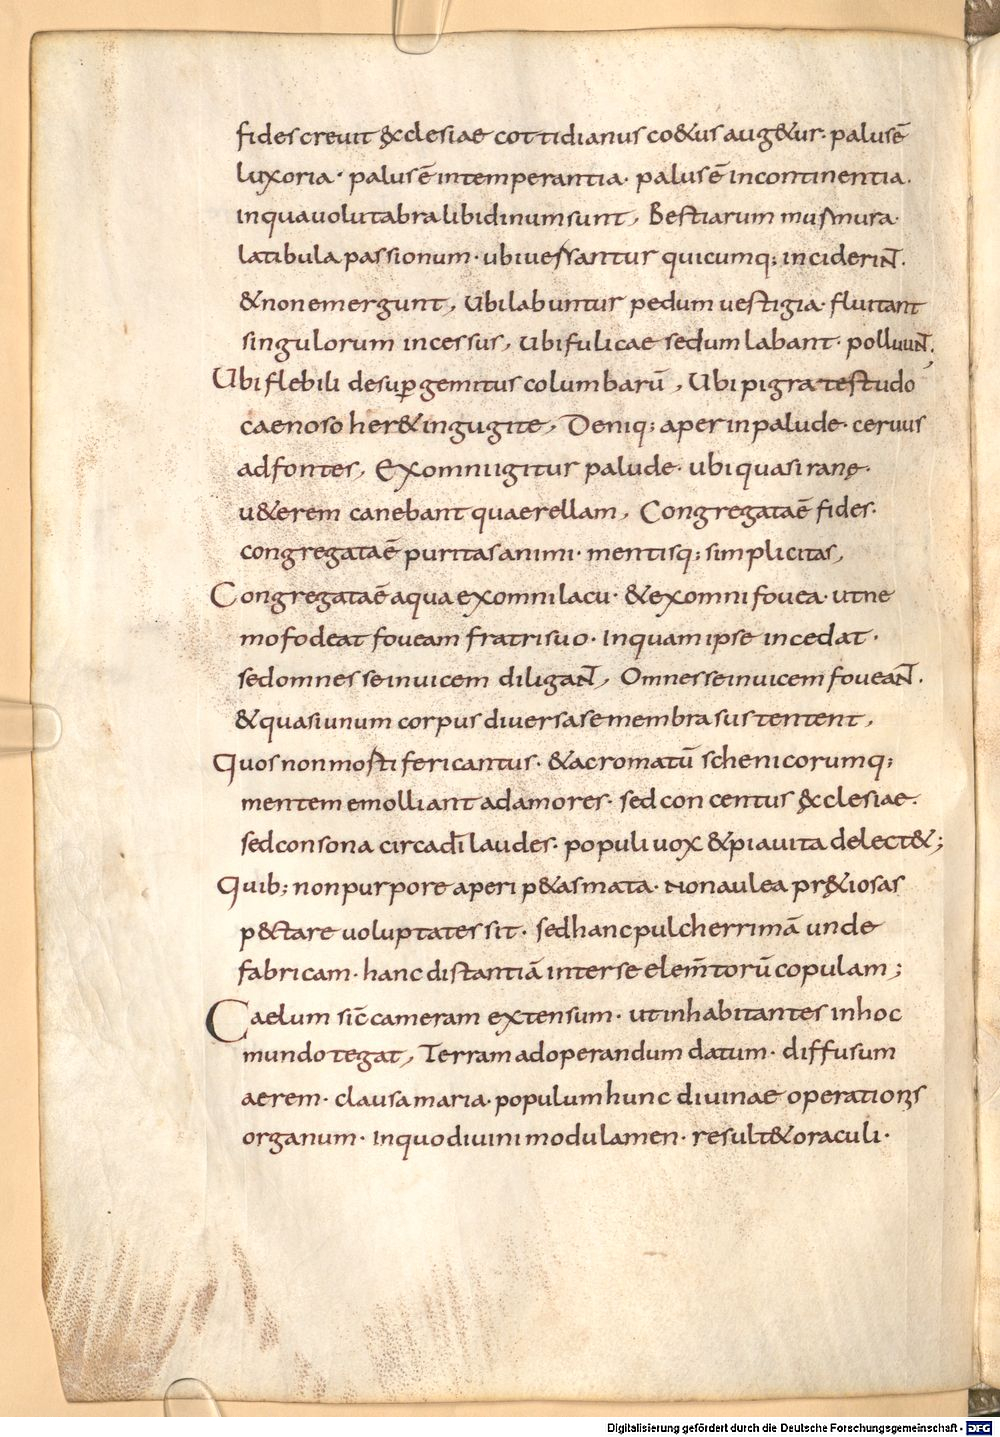 fides crevit & ęcclesiae cottidianus co&us aug&ur· palus ē
luxoria· palus ē intemperantia· palus ē incontinentia·
in qua volutabra libidinum sunt, Bestiarum murmura·
latibula passionum· ubi versantur quicumq; inciderinт·
& non emergunt, Ubi labuntur pedum vestigia· fluitant
singulorum incessus, ubi fulicae se dum labant· polluunт,
Ubi flebili desup gemitus columbarū, Ubi pigra testudo
caenoso her& in gugite, Deniq; aper in palude· cervus
ad fontes, Ex omni igitur palude· ubi quasi ranę·
u&erem canebant quaerellam, Congregata ē fides·
congregata ē puritas animi· mentisq; simplicitas,
Congregata ē aqua ex omni lacu· & ex omni fovea· ut ne
mo fodeat foveam fratri suo· In quam ipse incedat·
sed omnes se invicem diliganт, Omnes se invicem foveanт·
& quasi unum corpus diversa se membra sustentent,
Quos non mostiferi cantus· & acromatū schenicorumq;
mentem emolliant ad amores· sed concentus ęcclesiae·
sed consona circa dī laudes· populi vox & pia vita delect&;
Quib; non purpore aperip&asmata· Non aulea pr&iosas
p&ctare voluptates sit· sed hanc pulcherrimā unde
fabricam· hanc distantiā inter se elem̄torū copulam;
Caelum sic̄ cameram extensum· ut inhabitantes in hoc
mundo tegat, Terram ad operandum datum· diffusum
aerem· clausa maria· populum hunc divinae operationis
organum· In quo divini modulamen· result& oraculi·
Digitalisierung gefördert durch die Deutsche Forschungsgemeinschaft - DFG